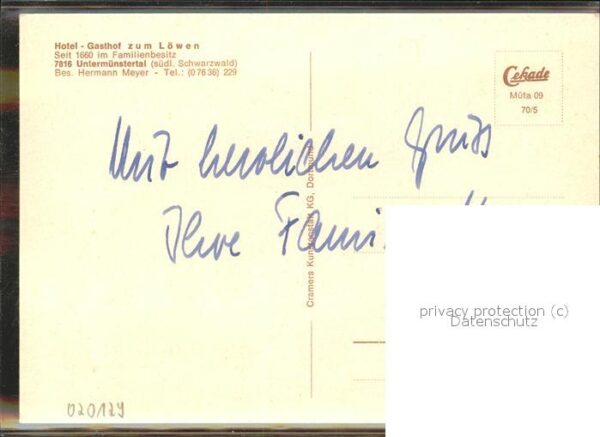 Hotel - Gasthof zum Löwen
Seit 1660 im Familienbesitz
7816 Untermünstertal (südl. Schwarzwald)
Bes. Hermann Meyer - Tel.: (0 76 36) 229
Cekade
Müta 09
70/5
Mit herzlichen Gruss
Ihre
Cramers Kunstanstalt KG, Dortmund
privacy protection (c)
Datenschutz
020129